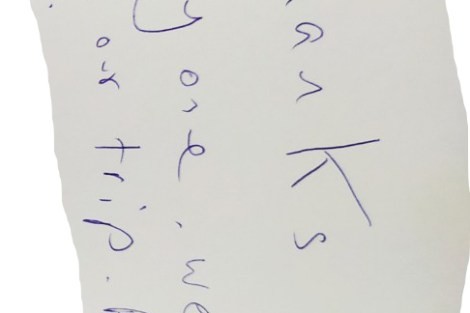 anKs
y one. we
our trip.